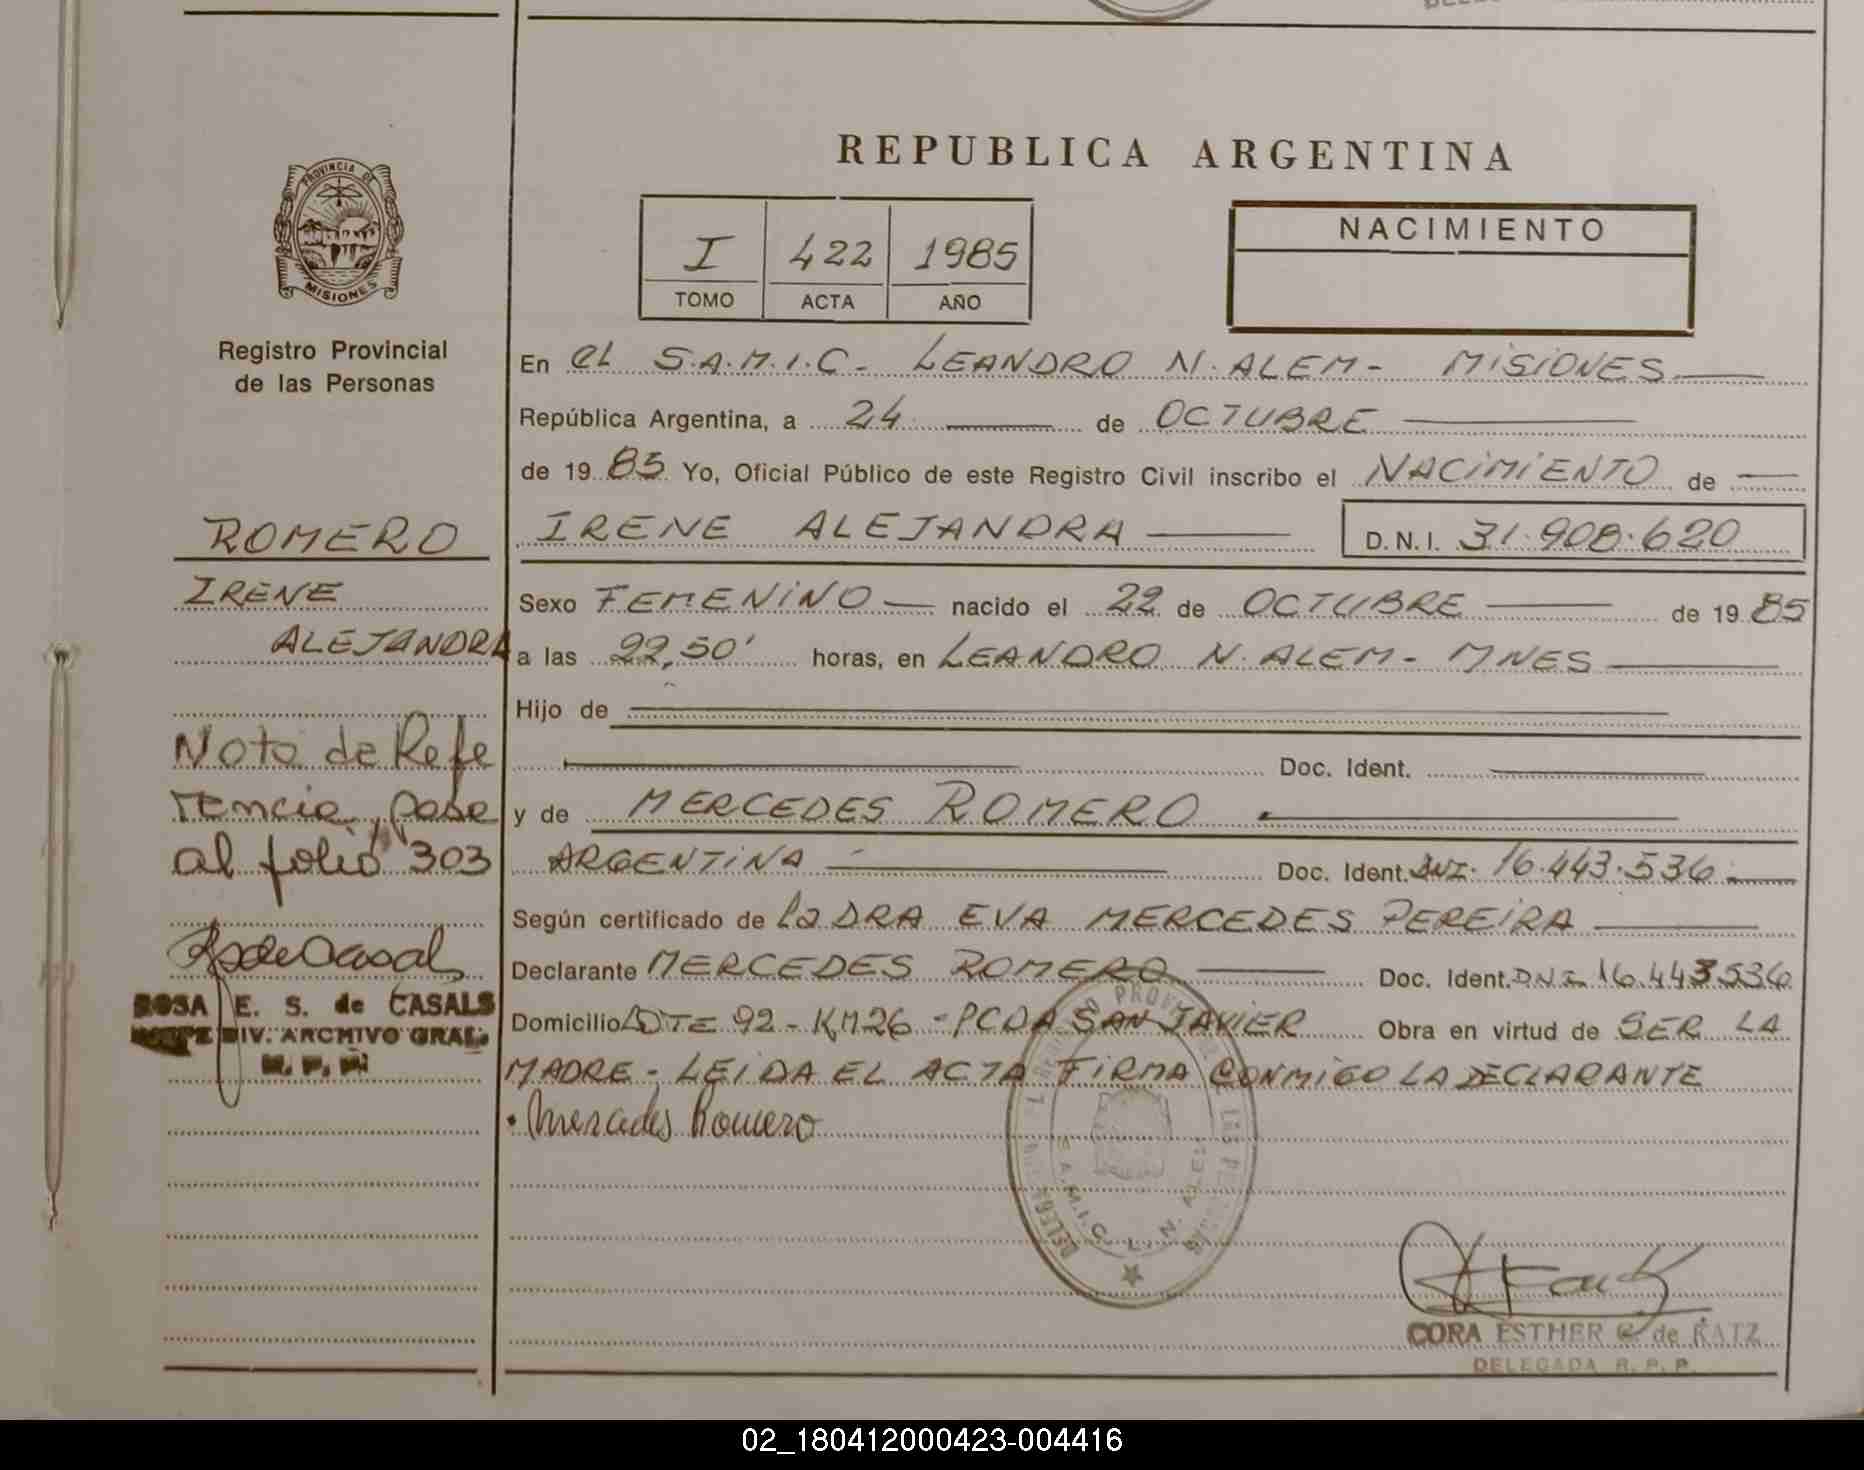 REPUBLICA ARGENTINA
PROVINCIA DE
MISIONES
Registro Provincial
de las Personas
I 422 1985
TOMO ACTA AÑO
NACIMIENTO
En el S.A.M.I.C. LEANDRO N. ALEM - MISIONES
República Argentina, a 24 de OCTUBRE
de 19 85 Yo, Oficial Público de este Registro Civil inscribo el NACIMIENTO de
IRENE ALEJANDRA D.N.I. 31.908.620
Sexo FEMENINO nacido el 22 de OCTUBRE de 19 85
a las 22,50' horas, en LEANDRO N. ALEM - MNES
Hijo de
Doc. Ident.
y de MERCEDES ROMERO
ARGENTINA Doc. Ident. DNI. 16.443.536
Según certificado de la DRA EVA MERCEDES PEREIRA
Declarante MERCEDES ROMERO Doc. Ident. DNI 16.443536
Domicilio LOTE 92 - KM 26 - PCDA SAN JAVIER Obra en virtud de SER LA
MADRE - LEIDA EL ACTA FIRMA CONMIGO LA DECLARANTE
Mercedes Romero
ROMERO
IRENE
ALEJANDRA
Nota de Refe
rencia, pase
al folio 303
RSdeCasals
ROSA E. S. de CASALS
DIV. ARCHIVO GRAL.
R. P. P.
S.A.M.I.C. L. N. ALEM
CORA ESTHER C. de KATZ
DELEGADA R. P. P.
02_180412000423-004416